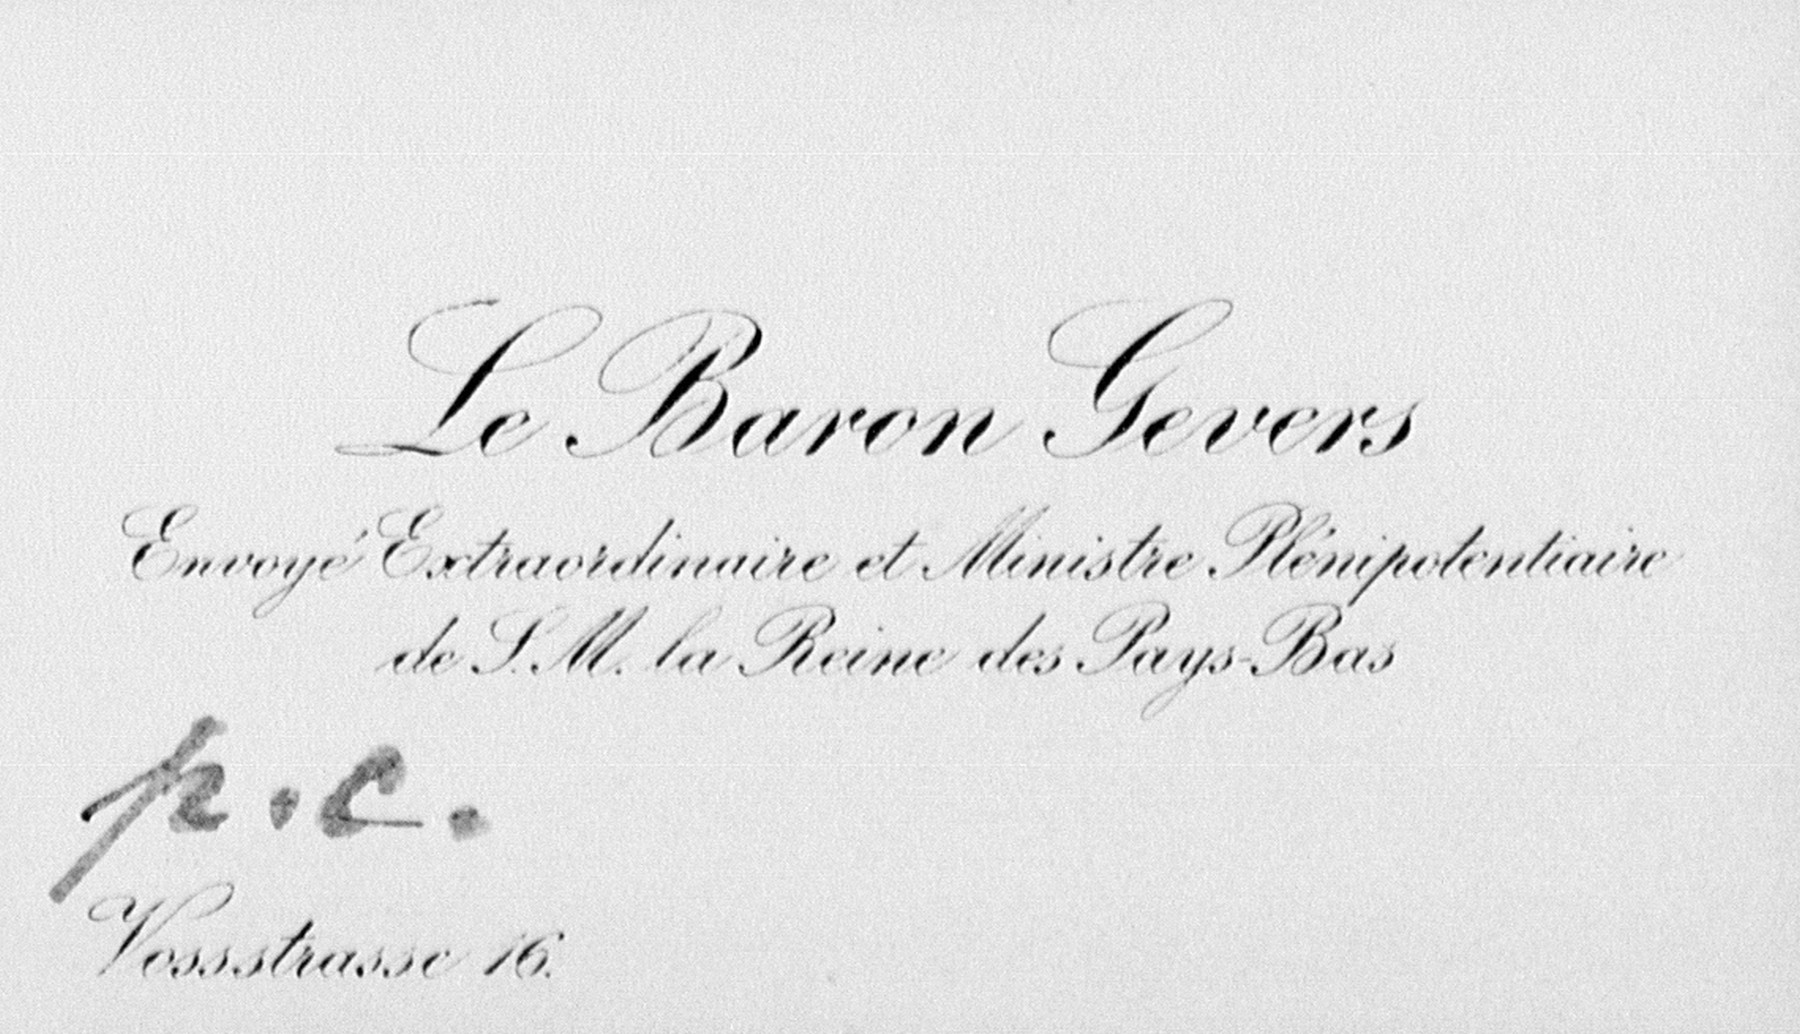 Le Baron Gevers
Envoyé Extraordinaire et Ministre Plénipotentiaire
de S. M. la Reine des Pays-Bas
p.c.
Vossstrasse 16.